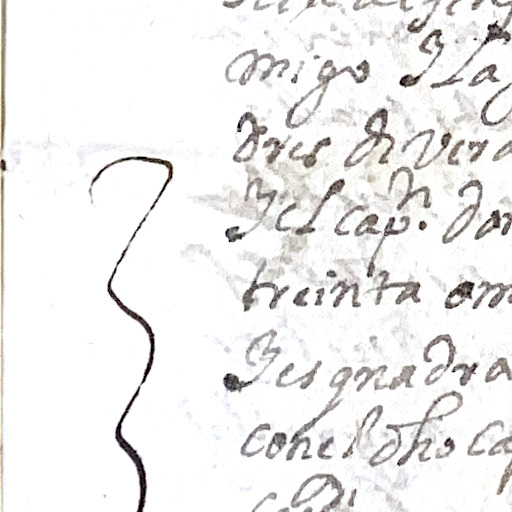 migo Y La
dres de vera
Y el capn. don
treinta om
Y esquadra
con el dho ca